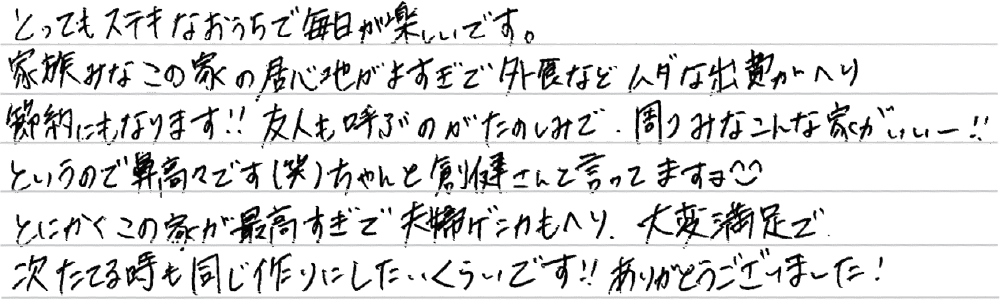 とってもステキなおうちで毎日が楽しいです。
家族みなこの家の居心地がよすぎで外食などムダな出費がへり
節約にもなります!! 友人も呼ぶのがたのしみで、周りみなこんな家がいいー!!
というので鼻高々です(笑)ちゃんと創健さんて言ってますよ
とにかくこの家が最高すぎで夫婦ゲンカもへり、大変満足で
次たてる時も同じ作りにしたいくらいです!! ありがとうございました!